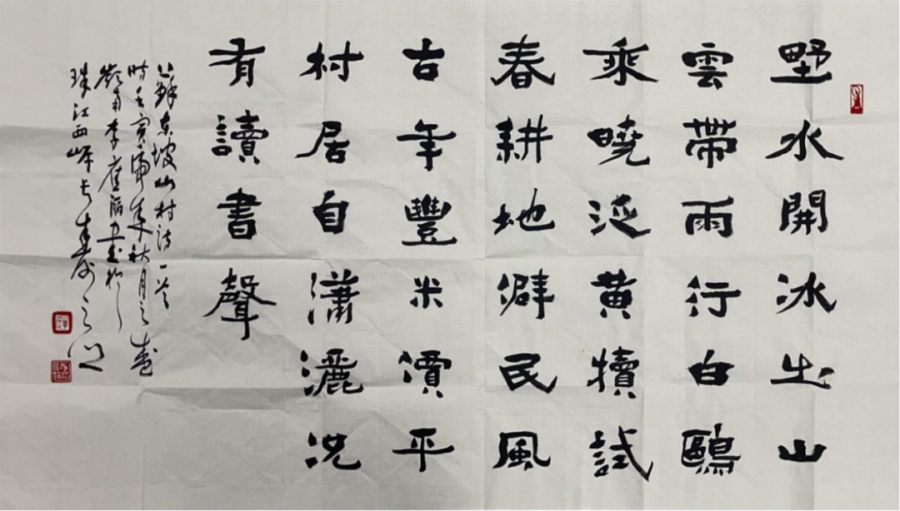 墅水開冰出山
雲帶雨行白鷗
乘曉逕黃犢試
春耕地僻民風
古年豐米價平
村居自瀟灑況
有讀書聲
蘇東坡山村詩一首
時壬寅年秋月之
嶺南李 書於
珠江西岸長壽之